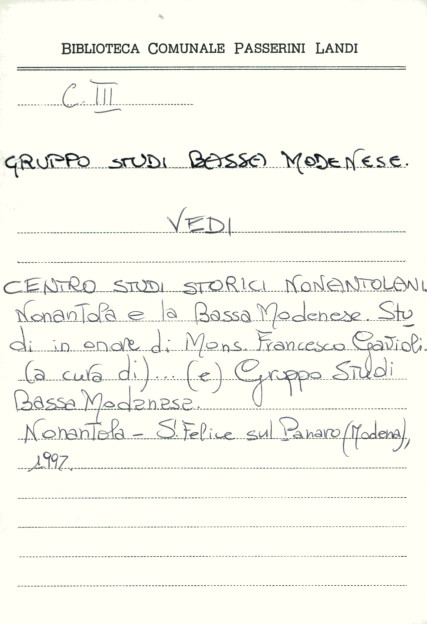 BIBLIOTECA COMUNALE PASSERINI LANDI
C. III
GRUPPO STUDI BASSA MODENESE.
VEDI
CENTRO STUDI STORICI NONANTOLANI
Nonantola e la Bassa Modenese. Stu
di in onore di Mons. Francesco Gavioli.
(a cura di)... (e) Gruppo Studi
Bassa Modenese.
Nonantola - S. Felice sul Panaro (Modena),
1997.